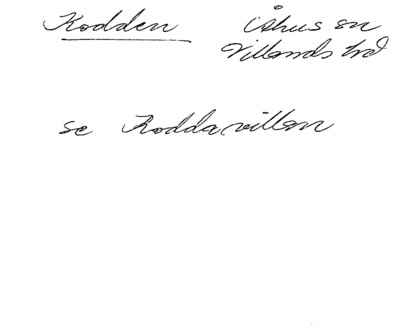 Rodden Åhus sn
Villands hd
se Roddavillan